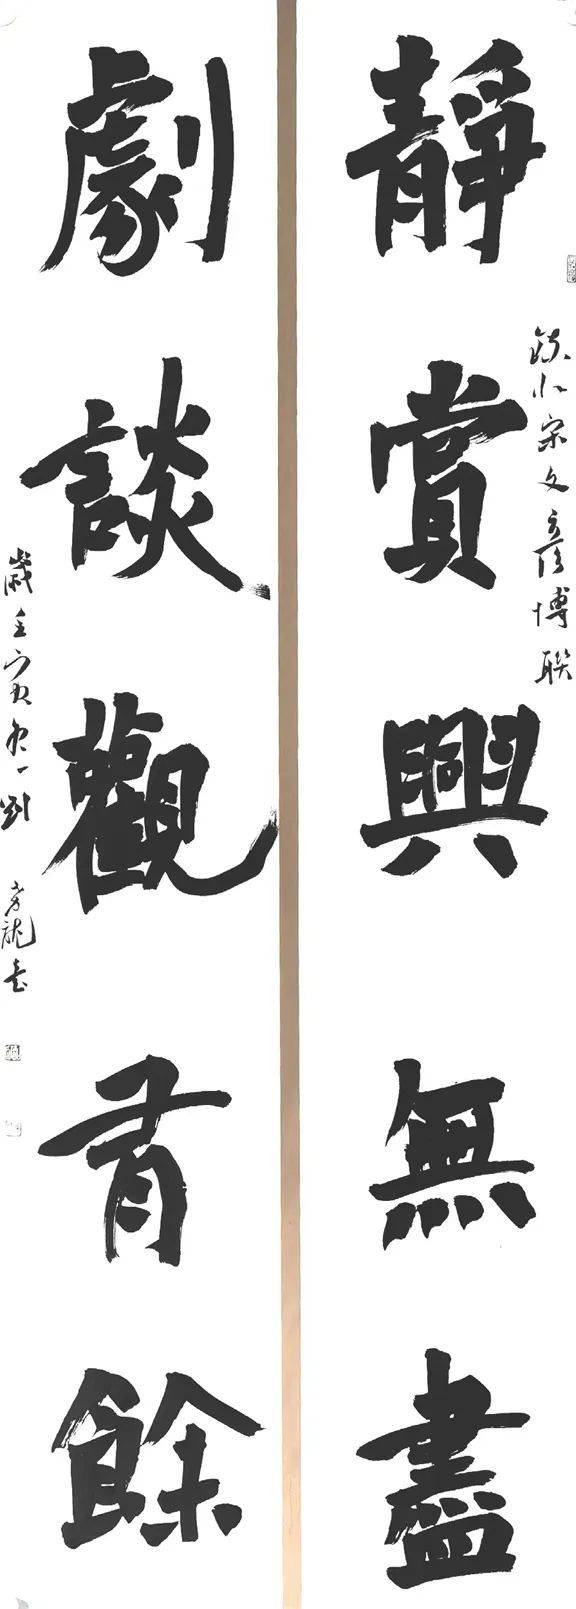 錄北宋文彥博聯
靜賞興無盡
劇談觀有餘
歲壬寅冬 劉 龍書